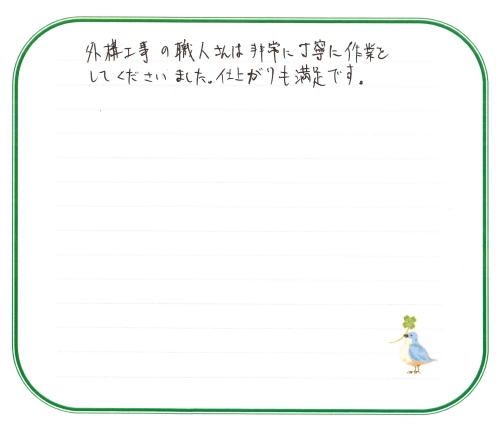 外構工事の職人さんは非常に丁寧に作業を
してくださいました。仕上がりも満足です。